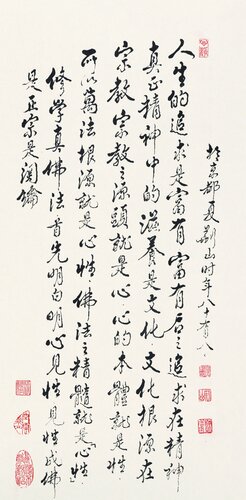 於京都夏山时年八十有八
人生的追求是富有富有后之追求在精神
真正精神中的滋养是文化文化根源在
宗教宗教之源頭就是心心的本體就是性
所以萬法根源就是心性佛法之精髓就是心性
修学真佛法首先明白明心見性見性成佛
是正宗是